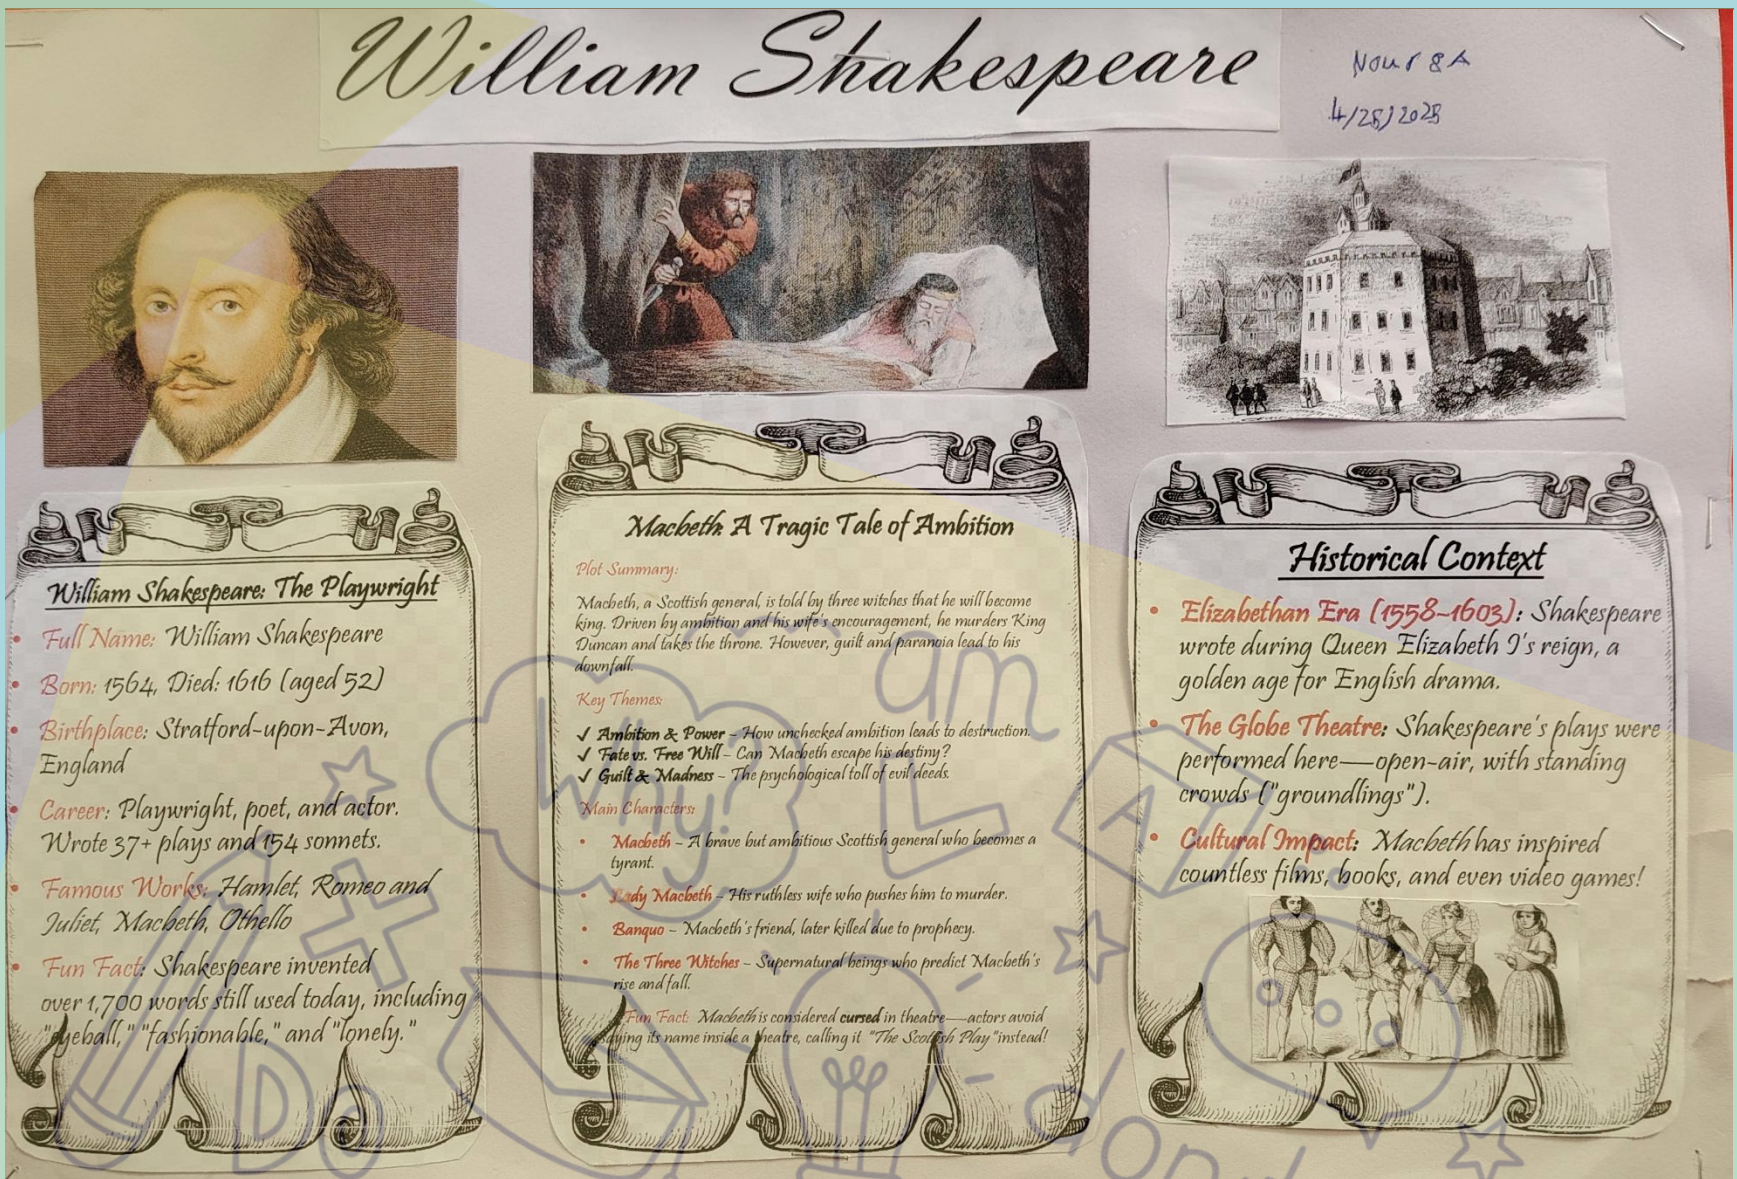 William Shakespeare
Nour 8A
4/28/2025
William Shakespeare: The Playwright
• Full Name: William Shakespeare
• Born: 1564, Died: 1616 (aged 52)
• Birthplace: Stratford-upon-Avon,
England
• Career: Playwright, poet, and actor.
Wrote 37+ plays and 154 sonnets.
• Famous Works: Hamlet, Romeo and
Juliet, Macbeth, Othello
• Fun Fact: Shakespeare invented
over 1,700 words still used today, including
"eyeball," "fashionable," and "lonely."
Macbeth: A Tragic Tale of Ambition
Plot Summary:
Macbeth, a Scottish general, is told by three witches that he will become
king. Driven by ambition and his wife's encouragement, he murders King
Duncan and takes the throne. However, guilt and paranoia lead to his
downfall.
Key Themes:
✓ Ambition & Power – How unchecked ambition leads to destruction.
✓ Fate vs. Free Will – Can Macbeth escape his destiny?
✓ Guilt & Madness – The psychological toll of evil deeds.
Main Characters:
• Macbeth – A brave but ambitious Scottish general who becomes a
tyrant.
• Lady Macbeth – His ruthless wife who pushes him to murder.
• Banquo – Macbeth's friend, later killed due to prophecy.
• The Three Witches – Supernatural beings who predict Macbeth's
rise and fall.
Fun Fact: Macbeth is considered cursed in theatre—actors avoid
saying its name inside a theatre, calling it "The Scottish Play" instead!
Historical Context
• Elizabethan Era (1558–1603): Shakespeare
wrote during Queen Elizabeth I's reign, a
golden age for English drama.
• The Globe Theatre: Shakespeare's plays were
performed here—open-air, with standing
crowds ("groundlings").
• Cultural Impact: Macbeth has inspired
countless films, books, and even video games!
Why?
am
L
A
Do